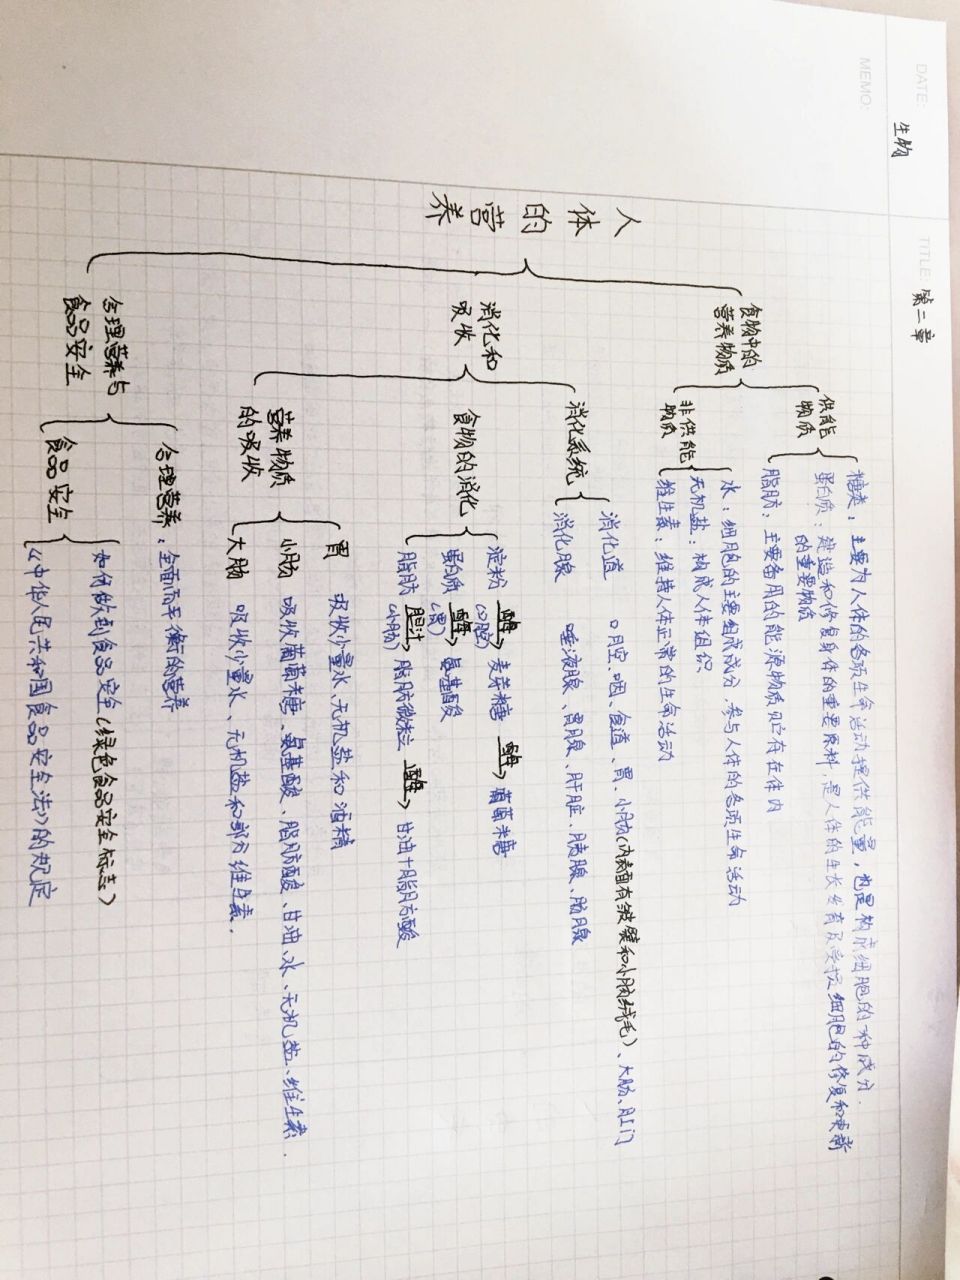 DATE:
MEMO:
生物
TITLE:
第二章
人体的营养
食物中的
营养物质
供能
物质
糖类：主要为人体的各项生命活动提供能量，也是构成细胞的一种成分.
蛋白质：建造和修复身体的重要原料，是人体的生长发育及受损细胞的修复和更新
的重要物质
脂肪：主要备用的能源物质贮存在体内
非供能
物质
水：细胞的主要组成成分，参与人体的各项生命活动
无机盐：构成人体组织
维生素：维持人体正常的生命活动
消化和
吸收
消化系统
消化道 口腔、咽、食道、胃、小肠(内表面有皱襞和小肠绒毛)、大肠、肛门
消化腺 唾液腺、胃腺、肝脏、胰腺、肠腺
食物的消化
淀粉 酶(口腔)→ 麦芽糖 酶→ 葡萄糖
蛋白质 酶(胃)→ 氨基酸
脂肪 胆汁(小肠)→ 脂肪微粒 酶→ 甘油+脂肪酸
营养物质
的吸收
胃 吸收少量水、无机盐和酒精
小肠 吸收葡萄糖、氨基酸、脂肪酸、甘油、水、无机盐、维生素.
大肠 吸收少量水、无机盐和部分维生素.
合理营养与
食品安全
合理营养：全面而平衡的营养
食品安全
如何做到食品安全(绿色食品安全标志)
《中华人民共和国食品安全法》的规定